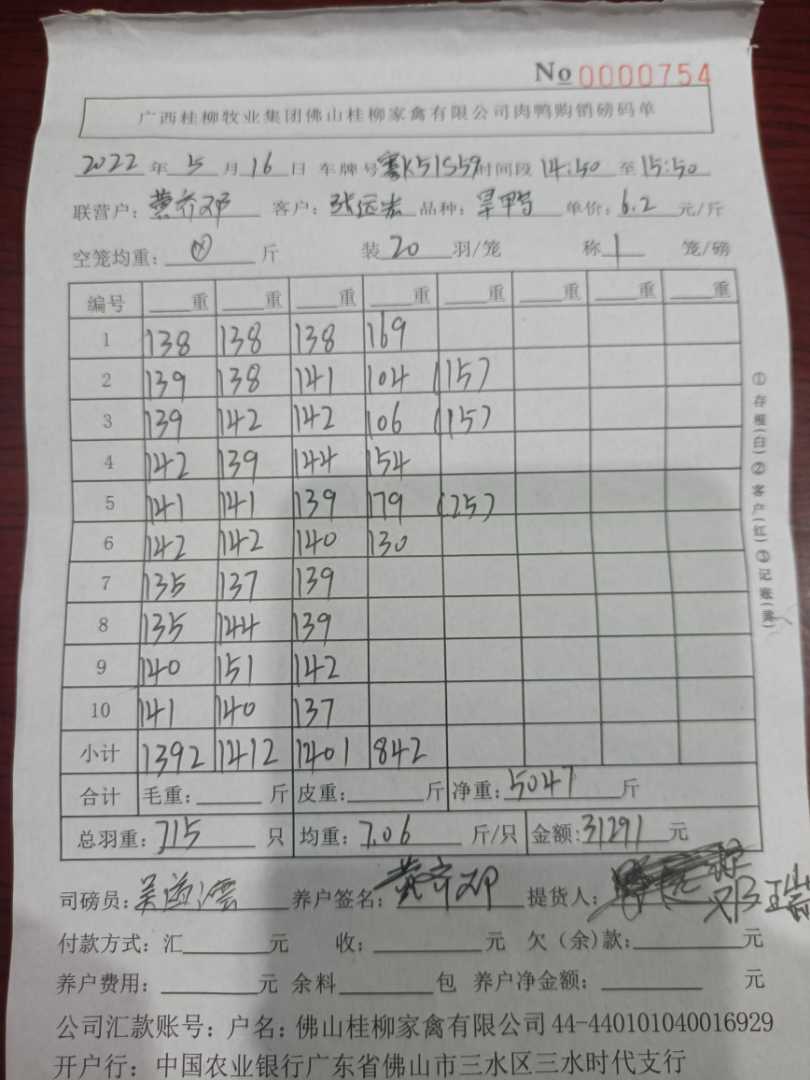 No 0000754
广西桂柳牧业集团佛山桂柳家禽有限公司肉鸭购销磅码单
2022 年 5 月 16 日 车牌号 粤K51S59 时间段 14:50 至 15:50
联营户: 黄齐邓 客户: 张远宏 品种: 旱鸭 单价: 6.2 元/斤
空笼均重: 斤 装 20 羽/笼 称 1 笼/磅
编号 重 重 重 重 重 重 重 重
1 138 138 138 169
2 139 138 141 104 (15)
3 139 142 142 106 (15)
4 142 139 144 154
5 141 141 139 179 (25)
6 142 142 140 130
7 135 137 139
8 135 144 139
9 140 151 142
10 141 140 137
小计 1392 1412 1401 842
合计 毛重: 斤 皮重: 斤 净重: 5047 斤
总羽重: 715 只 均重: 7.06 斤/只 金额: 31291 元
司磅员: 养户签名: 黄齐邓 提货人: 邓瑞
付款方式: 汇 元 收: 元 欠(余)款: 元
养户费用: 元 余料 包 养户净金额: 元
公司汇款账号: 户名: 佛山桂柳家禽有限公司 44-440101040016929
开户行: 中国农业银行广东省佛山市三水区三水时代支行
①存根(白)②客户(红)③记账(黄)